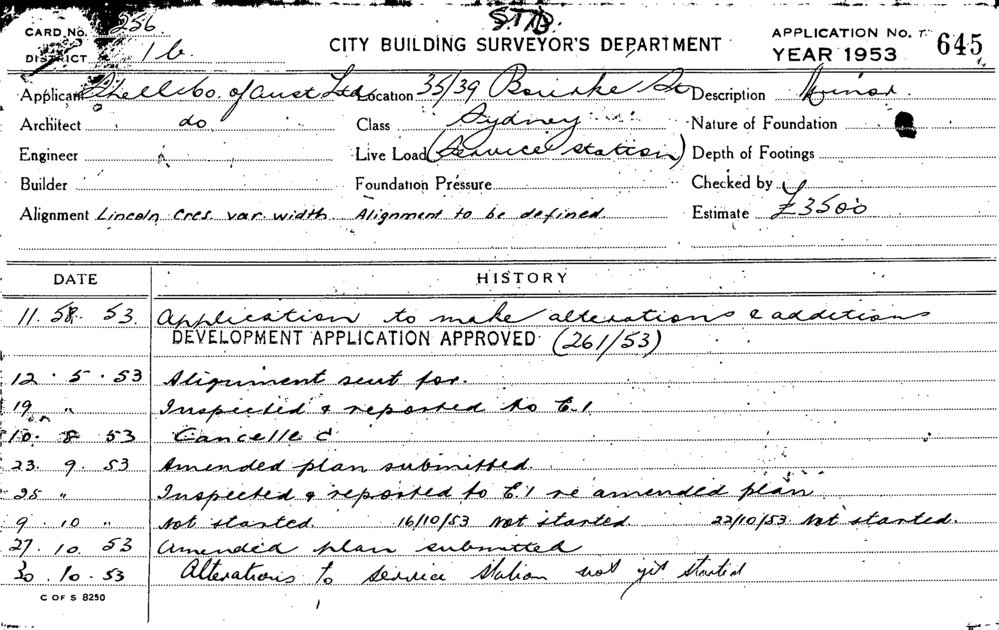 CARD No. 256
S.T.B.
CITY BUILDING SURVEYOR'S DEPARTMENT
APPLICATION No. 645
YEAR 1953
DISTRICT 1b
Applicant Shell Co. of Aust Ltd Location 35/39 Bourke St Description Minor
Architect do Class Sydney Nature of Foundation
Engineer Live Load (Service Station) Depth of Footings
Builder Foundation Pressure Checked by
Alignment Lincoln Cres. var. width. Alignment to be defined. Estimate £3500
DATE HISTORY
11. 5. 53. Application to make alterations & additions
DEVELOPMENT APPLICATION APPROVED (261/53)
12 . 5 . 53 Alignment sent for.
19 " Inspected & reported to E.1
10. 8 53 Cancelled
23. 9. 53 Amended plan submitted.
25 " Inspected & reported to E.1 re amended plan
9. 10 " Not started. 16/10/53 Not started. 22/10/53 Not started.
27. 10. 53 Amended plan submitted
30. 10. 53 Alterations to service station not yet started
C OF S 8250